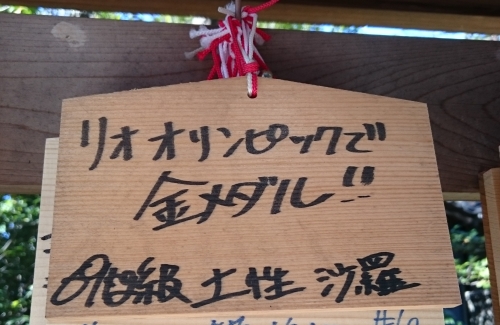 リオオリンピックで
金メダル!!
69kg級 土性 沙羅